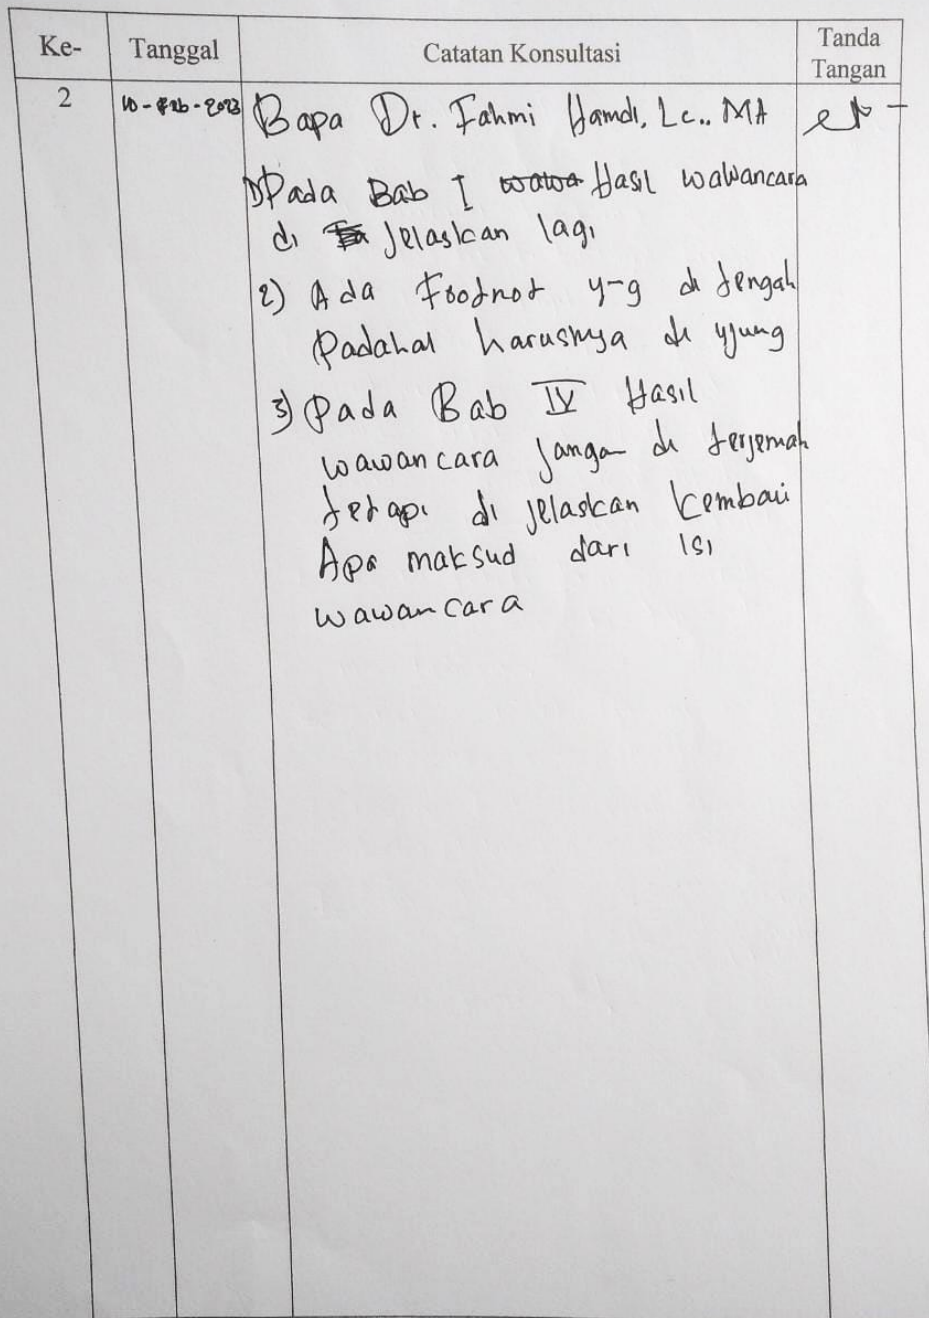 Ke- Tanggal Catatan Konsultasi Tanda Tangan
2 10-Feb-2023 Bapa Dr. Fahmi Hamdi, Lc., MA
1) Pada Bab I wawa Hasil wawancara
di jelaskan lagi
2) Ada Footnot y-g di tengah
Padahal harusnya di ujung
3) Pada Bab IV Hasil
wawancara jangan di terjemah
tetapi di jelaskan kembali
Apa maksud dari isi
wawancara